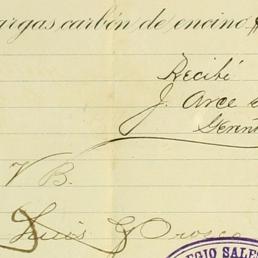 argas carbón de encino
Recibí
J. Arce
V B.
Luis G Orosco
EGIO SALES